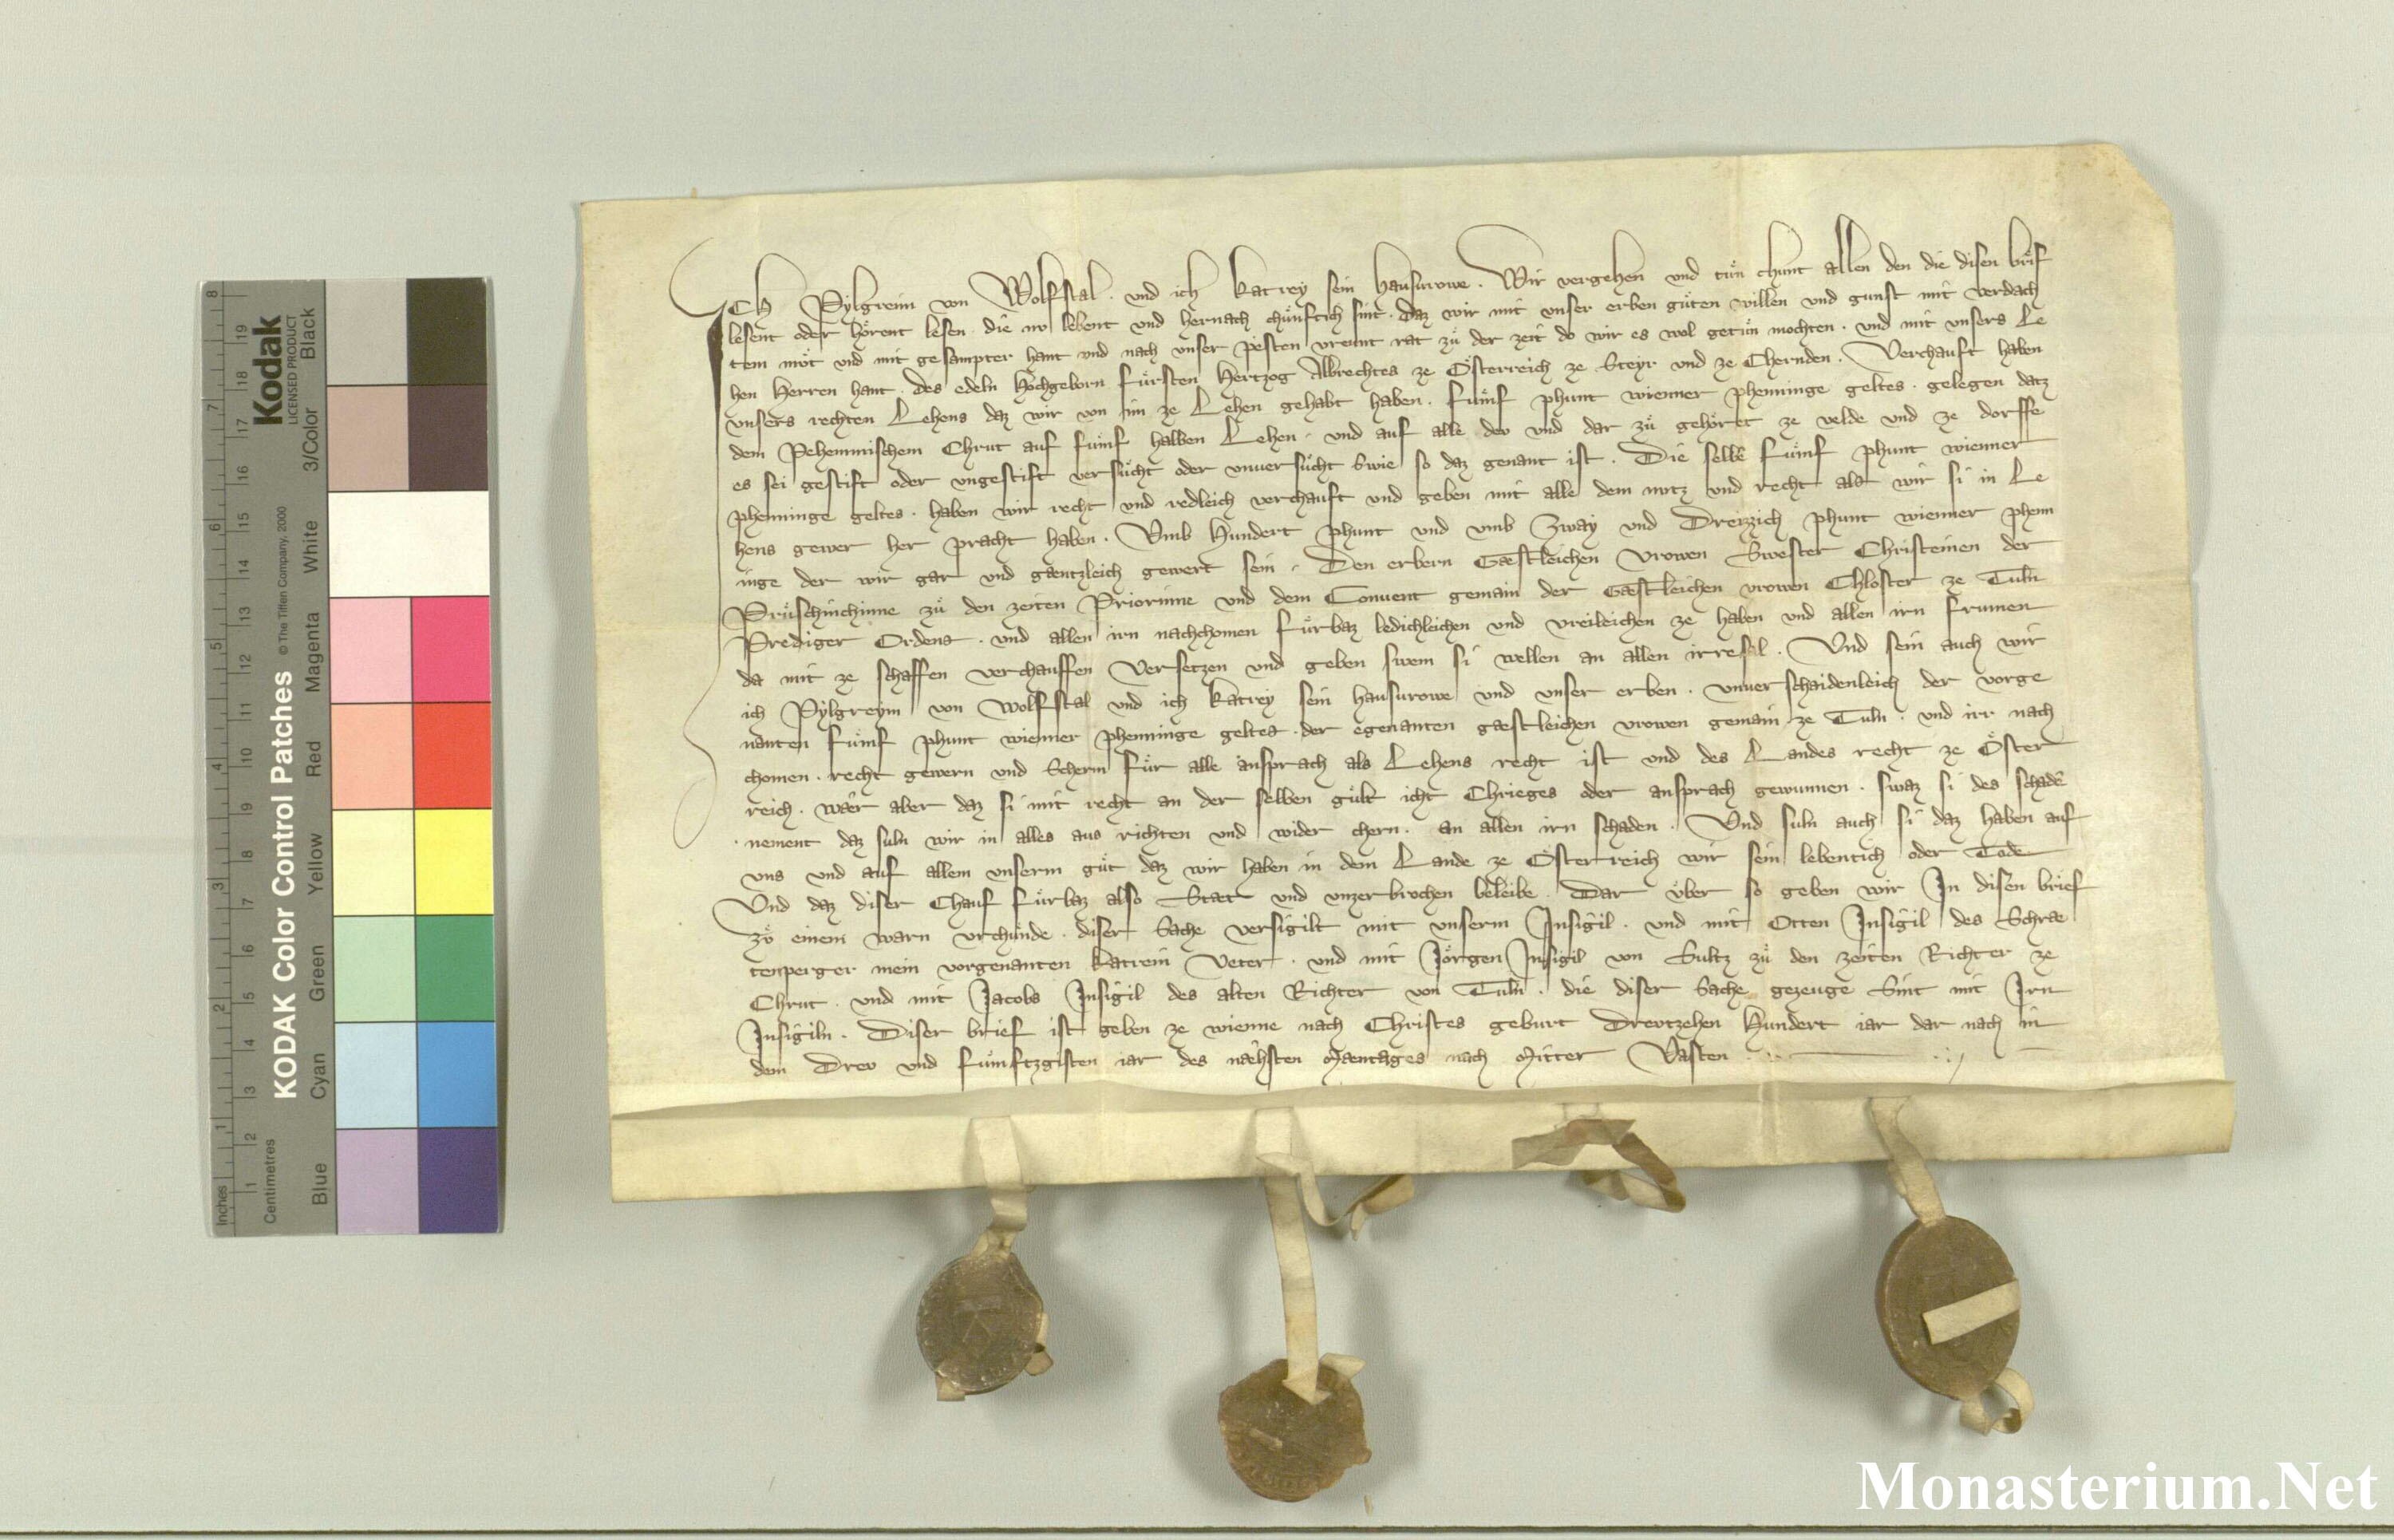 ICH Pylgreim von Wolfstal · vnd ich katrey sein hausurowe · Wir vergehen vnd tuͦn chunt allen den die disen brief
lesent oder hoͤrent lesen · die nv lebent vnd hernach chuͤnftich sint · daz wir mit vnser erben guͤten willen vnd gunst mit verdach
tem muͦt vnd mit gesampter hant vnd nach vnser pesten vreunt rat zuͦ der zeit do wir es wol getuͦn mochten · vnd mit vnsers Le
hen Herren hant · des edeln Hochgeborn fuͤrsten Hertzog Albrechtes ze Oͤsterreich ze Steyr vnd ze Chernden · Verchauft haben
vnsers rechten Lehens daz wir von im ze Lehen gehabt haben · fuͤmf phunt wienner phenninge geltes · gelegen datz
dem Pehemmischem Chrut auf fuͤmf halben Lehen · vnd auf alle dev vnd dar zuͦ gehoͤret ze velde vnd ze dorffe
es sei gestift oder vngestift versuͤcht oder vnuersuͤcht Swie so daz genant ist · Die selbe fuͤmf phunt wienner
phenninge geltes · haben wir recht vnd redleich verchauft vnd geben mit alle dem nutz vnd recht als wir si in Le
hens gewer her pracht haben · Vmb Hundert phunt vnd vmb Zway vnd Dreizzich phunt wienner phenn
inge der wir gar vnd gæntzleich gewert sein · Den erbern Gæstleichen vrowen Swester Christeinen der
Pruͤschinchinne zuͦ den zeiten Priorinne vnd dem Conuent gemain der Gæstleichen vrowen Chloster ze Tuln
Prediger Ordens · vnd allen irn nachchomen fuͤrbaz ledichleichen vnd vreileichen ze haben vnd allen irn frumen
da mit ze schaffen verchauffen Versetzen vnd geben swem si wellen an allen irresal · Vnd sein auch wir
ich Pylgreym von Wolfstal vnd ich katrey sein hausurowe vnd vnser erben · vnuerschaidenleich der vorge
nanten fuͤmf phunt wienner phenninge geltes · der egenanten gæstleichen vrowen gemain ze Tuln · vnd irr nach
chomen · recht gewern vnd Scherm fuͤr alle ansprach als Lehens recht ist vnd des Landes recht ze Oͤster
reich · wær aber daz si mit recht an der selben guͤlt icht Chrieges oder ansprach gewunnen · swaz si des schadē
· nement daz suln wir in alles aus richten vnd wider chern · an allen irn schaden · Vnd suln auch si daz haben auf
vns vnd auf allem vnserm guͦt daz wir haben in dem Lande ze Oͤsterreich wir sein lebentich oder Tode
Vnd daz diser Chauf fuͤrbaz also Stæt vnd vnzerbrochen beleibe · Dar uͤber so geben wir In disen brief
zuͦ einem warn vrchuͤnde · diser Sache versigilt mit vnserm Insigil · vnd mit Otten Insigil des Schræ
tenperger mein vorgenanten katrein Veter · vnd mit Joͤrgen Insigil von Sultz zuͦ den zeiten Richter ze
Chrut · vnd mit Jacobs Insigil des alten Richter von Tuln · die diser Sache gezeuge Sint mit Irn
Insigiln · Diser brief ist geben ze wienne nach Christes geburt Drevtzehen Hundert iar dar nach in
dem Drev vnd fuͤmftzgisten iar des næhsten Mæntages nach Mitter Vasten
KODAK Color Control Patches
Kodak
LICENSED PRODUCT
© The Tiffen Company, 2000
Black
3/Color
White
Magenta
Red
Yellow
Green
Cyan
Blue
Inches
1 2 3 4 5 6 7 8
Centimetres
1 2 3 4 5 6 7 8 9 10 11 12 13 14 15 16 17 18 19
Monasterium.Net